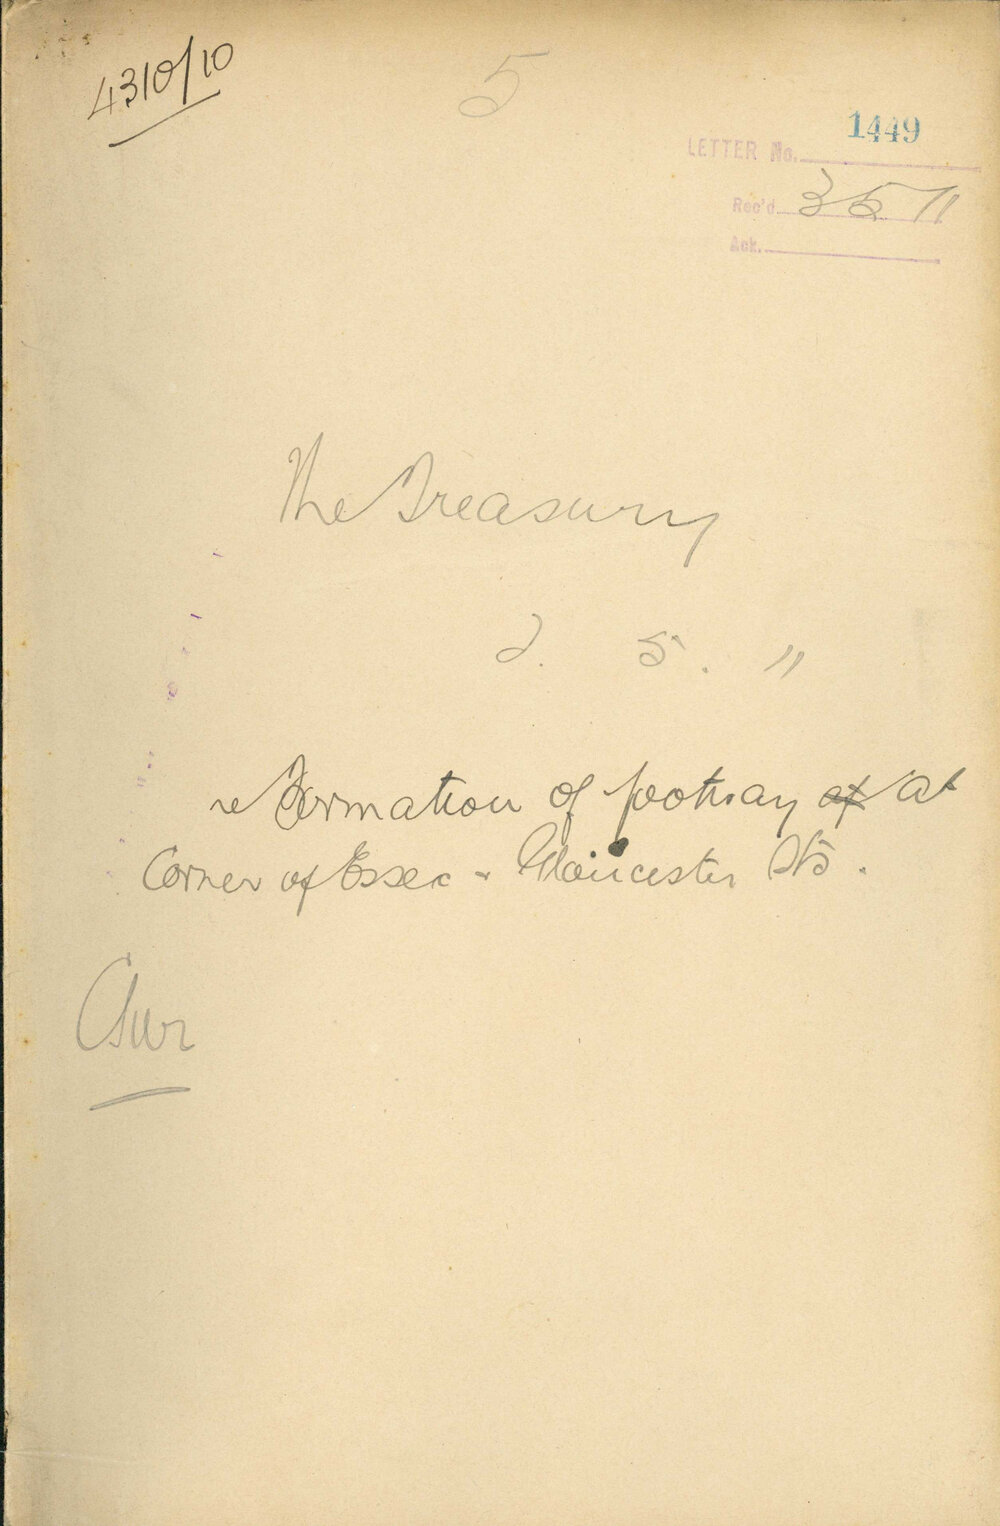 4310/10
5
1449
LETTER No.
Rec'd 3 5 11
Ack.
The Treasury
2. 5. 11
re Formation of footway of at
Corner of Essex & Gloucester Sts.